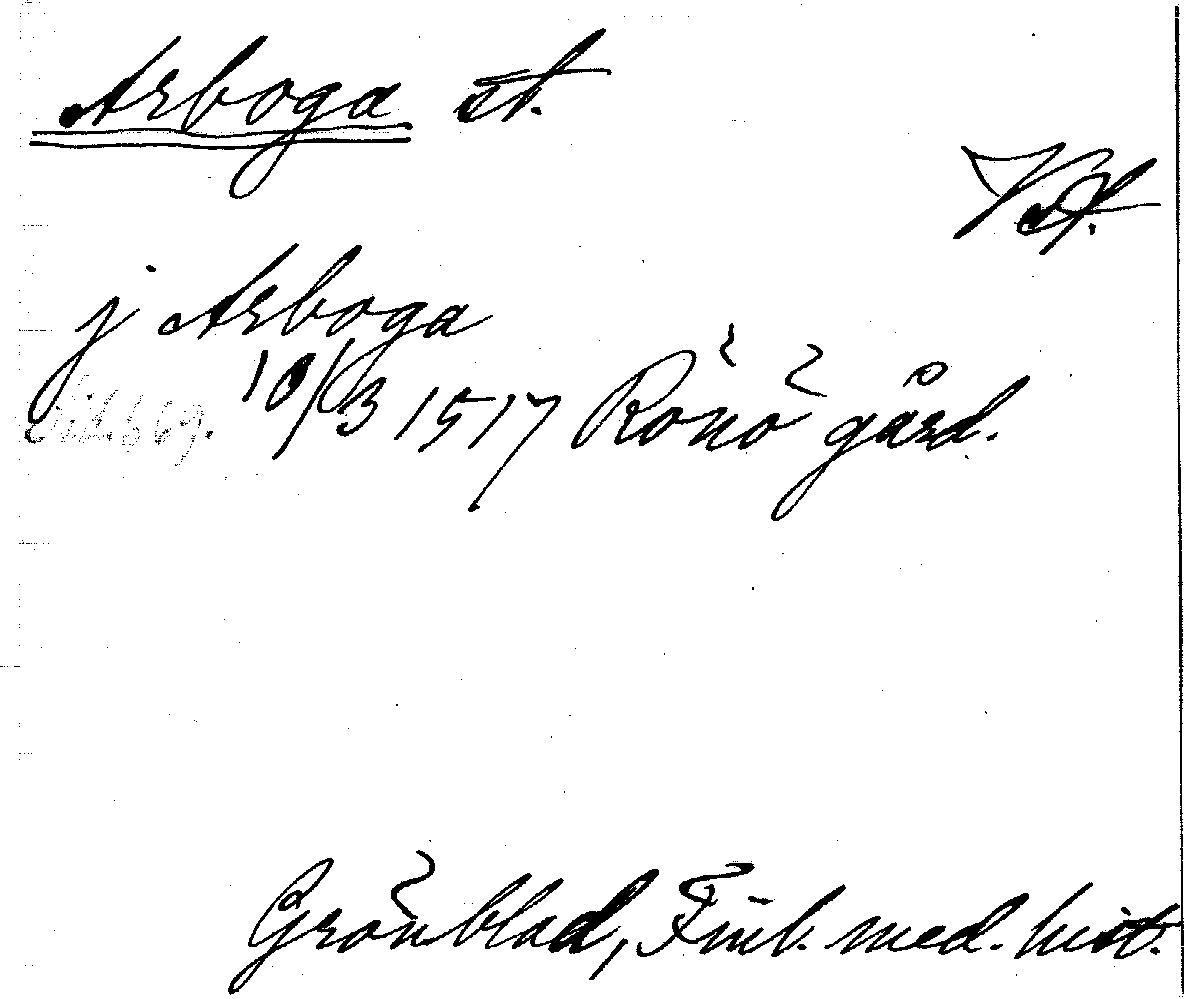 Arboga st.
Vstm.
j Arboga
Sid. 669. 10/3 1517 Rönö gård.
Grönblad, Finl. med. hist.